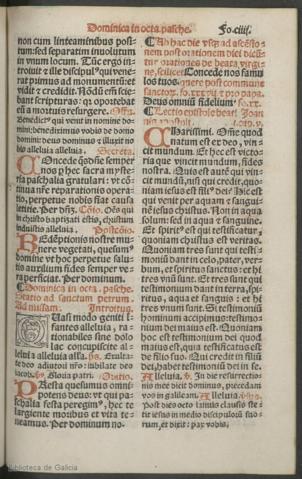 Dominica in octa. pasche. Fo. ciiij.
non cum linteaminibus posi-
tum: sed separatim inuolutum
in vnum locum. Tūc ergo in-
troiuit z ille discipulꝰ qui vene-
rat primus ad monumentū: et
vidit z credidit. Nōdū em̄ sci-
ebant scripturas: qꝫ oportebat
eū a mortuis resurgere. Offm̄.
Benedictꝰ qui venit in nomine do
mini: benediximus vobis de domo
domini: deus dominus z illuxit no
bis alleluia alleluia. Secreta.
COncede qēsdn̄e semper
nos p hec sacra myste-
ria paschalia gratulari: vt cō-
tinua nr̄e reparationis opera-
tio, perpetue nobis fiat causa
letitie. Per dn̄z. Cōio. Oēs qui
in christo baptizati estis, christum
induistis alleluia. Postcōio.
REdēptionis nostre mu-
nere vegetati, quesumꝰ
domine vt hoc perpetue salu-
tis auxilium fides semper ve-
ra perficiat. Per dominum.
Dominica in octa. pasche.
statio ad sanctum petrum.
Ad missam. Introitus.
QUasi modo geniti i-
fantes alleluia, ra-
tionabiles sine dolo
lac concupiscite al-
leluia alleluia alla. ps. Exulta-
te deo adiutori nr̄o: iubilate deo
iacob. ps. Gloria patri. Oratio.
PResta quesumus omni-
potens deus: vt qui pa-
schalia festa peregimꝰ, hec te
largiente moribus et vita te-
neamus. Per dominum no-
Ad hac die vsqꝫ ad ascēsio-
nem
tur orationes de beata virgi-
ne, scilicet Concede nos famu
los tuos.
sanctorū. fo. xx. vꝫ p pro papa.
Deus omniū fidelium. fo. xx.
Lectio epistole beati Joan
nis
CHarissimi. Omne quod
natum est ex deo, vin-
cit mundum. Et hec est victo-
ria que vincit mundum, fides
nostra. Quis est autē qui vin-
cit mundū, nisi qui credit, quo-
niam iesus est filiꝰ dei? Hic est
qui venit per aquam z sangui-
nē iesus christus. Non in aqua
solum: sed in aqua z sanguine.
Et spiritꝰ est qui testificatur,
quoniam christus est veritas.
Quoniam tres sunt qui testi-
moniū dant in celo, pater, ver-
bum, et spiritus sanctus: et hi
tres vnū sunt. Et tres sunt qui
testimonium dant in terra, spi-
ritus, aqua et sanguis: et hi
tres vnum sunt. Si testimoniū
hominum accipimus: testimo-
nium dei maius est. Quoniam
hoc est testimonium dei quod
maius est, qui testificatus est
de filio suo. Qui credit in filiū
dei, habet testimoniū dei in se.
Alleluia. ps. In die resurrectio-
nis mee dicit dominus, precedam
vos in galileam. Alleluia. ps.
Post dies octo ianuis clausis ste-
tit iesus in medio discipulorū suo-
rum, et dixit: pax vobis.
Biblioteca de Galicia